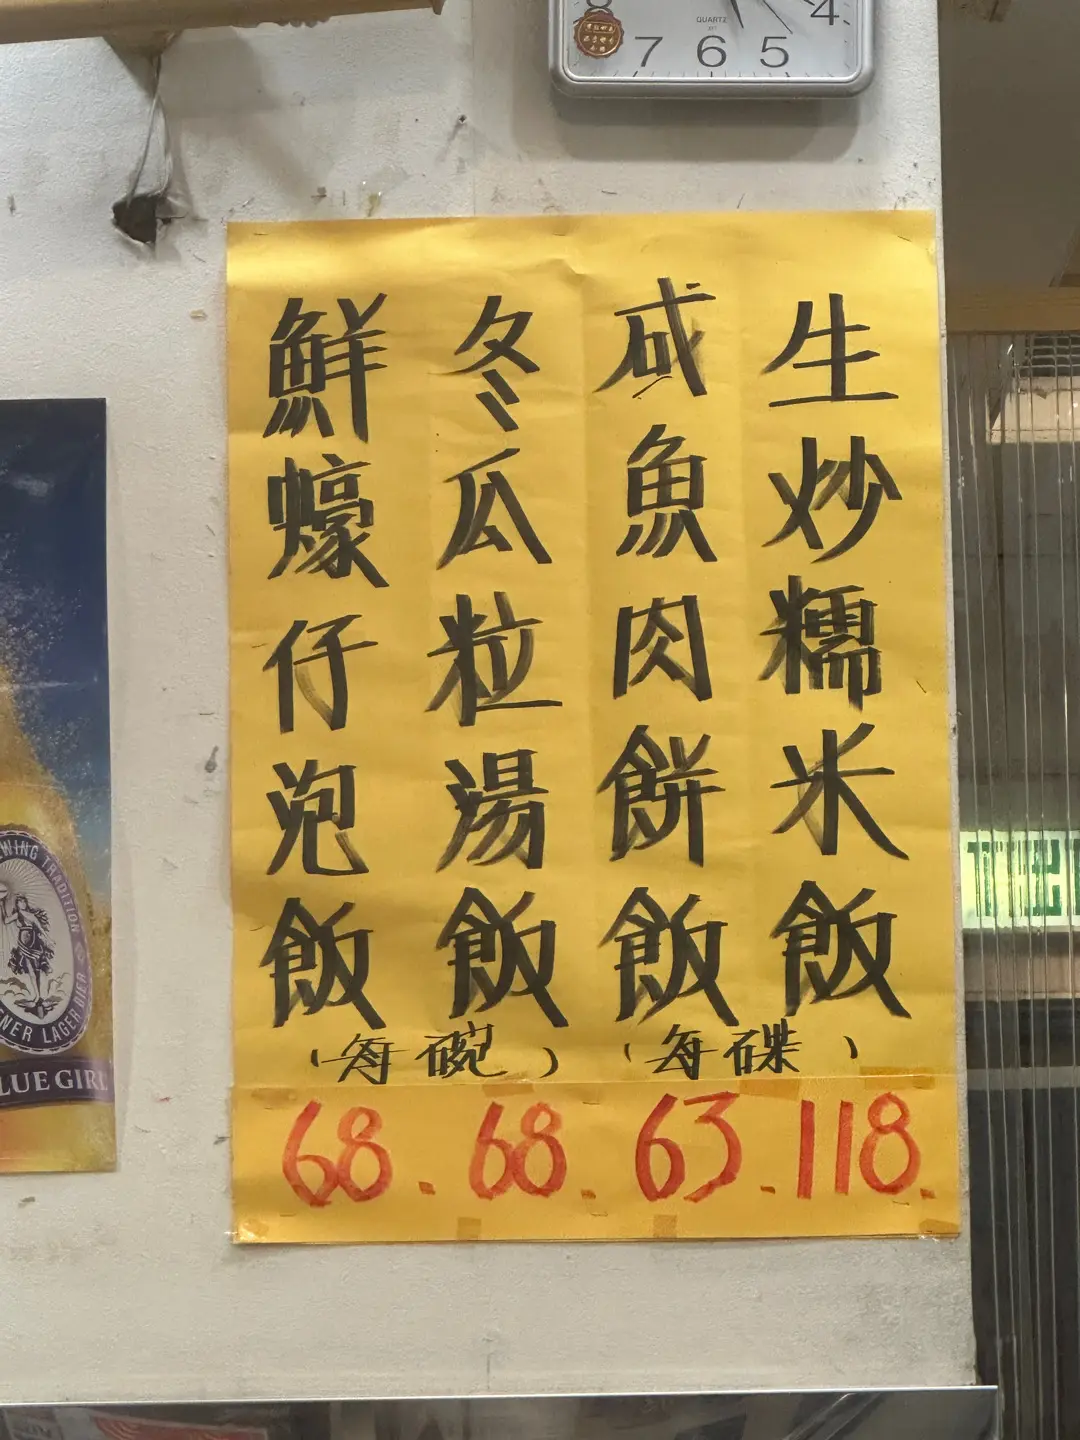 QUARTZ
8 7 6 5 4
生炒糯米飯
咸魚肉餅飯
冬瓜粒湯飯
鮮蠔仔泡飯
（每碗）
（每碟）
68.
68.
63.
118.
WING TRADITION
ENER LAGER BIER
LUE GIRL